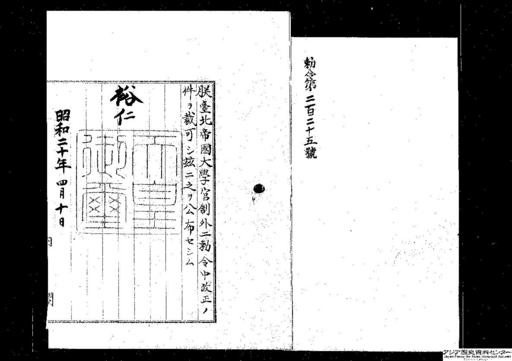 勅令第二百二十五號
朕臺北帝國大學官制外二勅令中改正ノ
件ヲ裁可シ玆ニ之ヲ公布セシム
裕仁
天皇
御璽
昭和二十年四月十日
アジア歴史資料センター